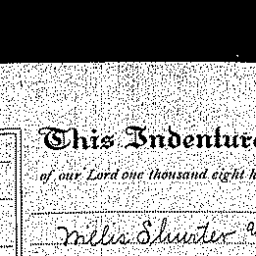 This Indenture
of our Lord one thousand eight h
Willis Shurter